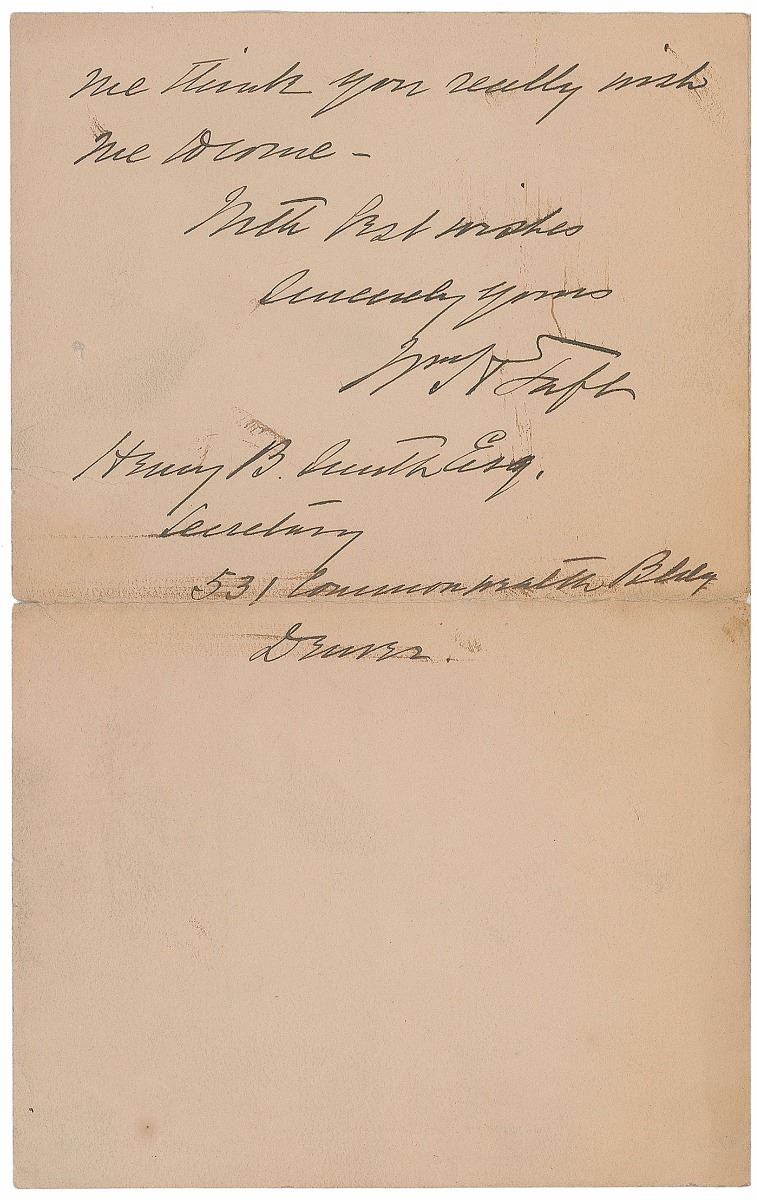 me think you really wish
me to come -
With best wishes
Sincerely yours
Wm H Taft
Henry B. Smith Esq.
Secretary
531 Commonwealth Bldg
Denver.